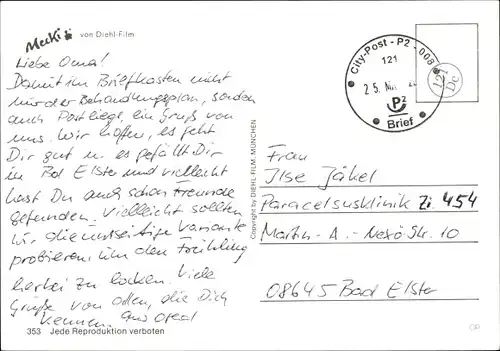 Mecki von Diehl-Film
Liebe Oma!
Damit im Briefkasten nicht
nur der Behandlungsplan, sondern
auch Post liegt, ein Gruß von
uns. Wir hoffen, es geht
Dir gut u. es gefällt Dir
in Bad Elster und vielleicht
hast Du auch schon Freunde
gefunden. Vielleicht sollten
wir die umseitige Variante
probieren, um den Frühling
herbei zu locken. Viele
Grüße von allen, die Dich
kennen.
353 Jede Reproduktion verboten
Copyright by DIEHL-FILM, MÜNCHEN
City-Post - P2 - 008
121
25.
P2
Brief
121
Dc
Frau
Ilse Jäkel
Paracelsusklinik Zi 454
Martin-A.-Nexö-Str. 10
08645 Bad Elster